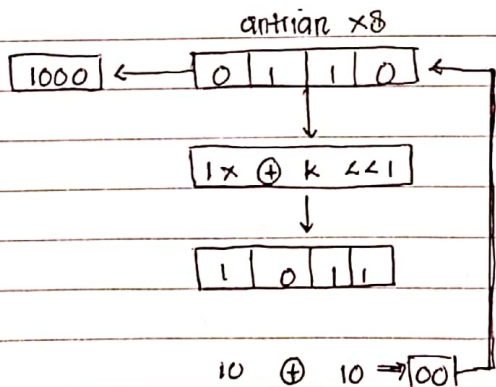 antrian x8
1000 0 1 1 0
1x ⊕ k <<1
1 0 1 1
10 ⊕ 10 ⇒ 00